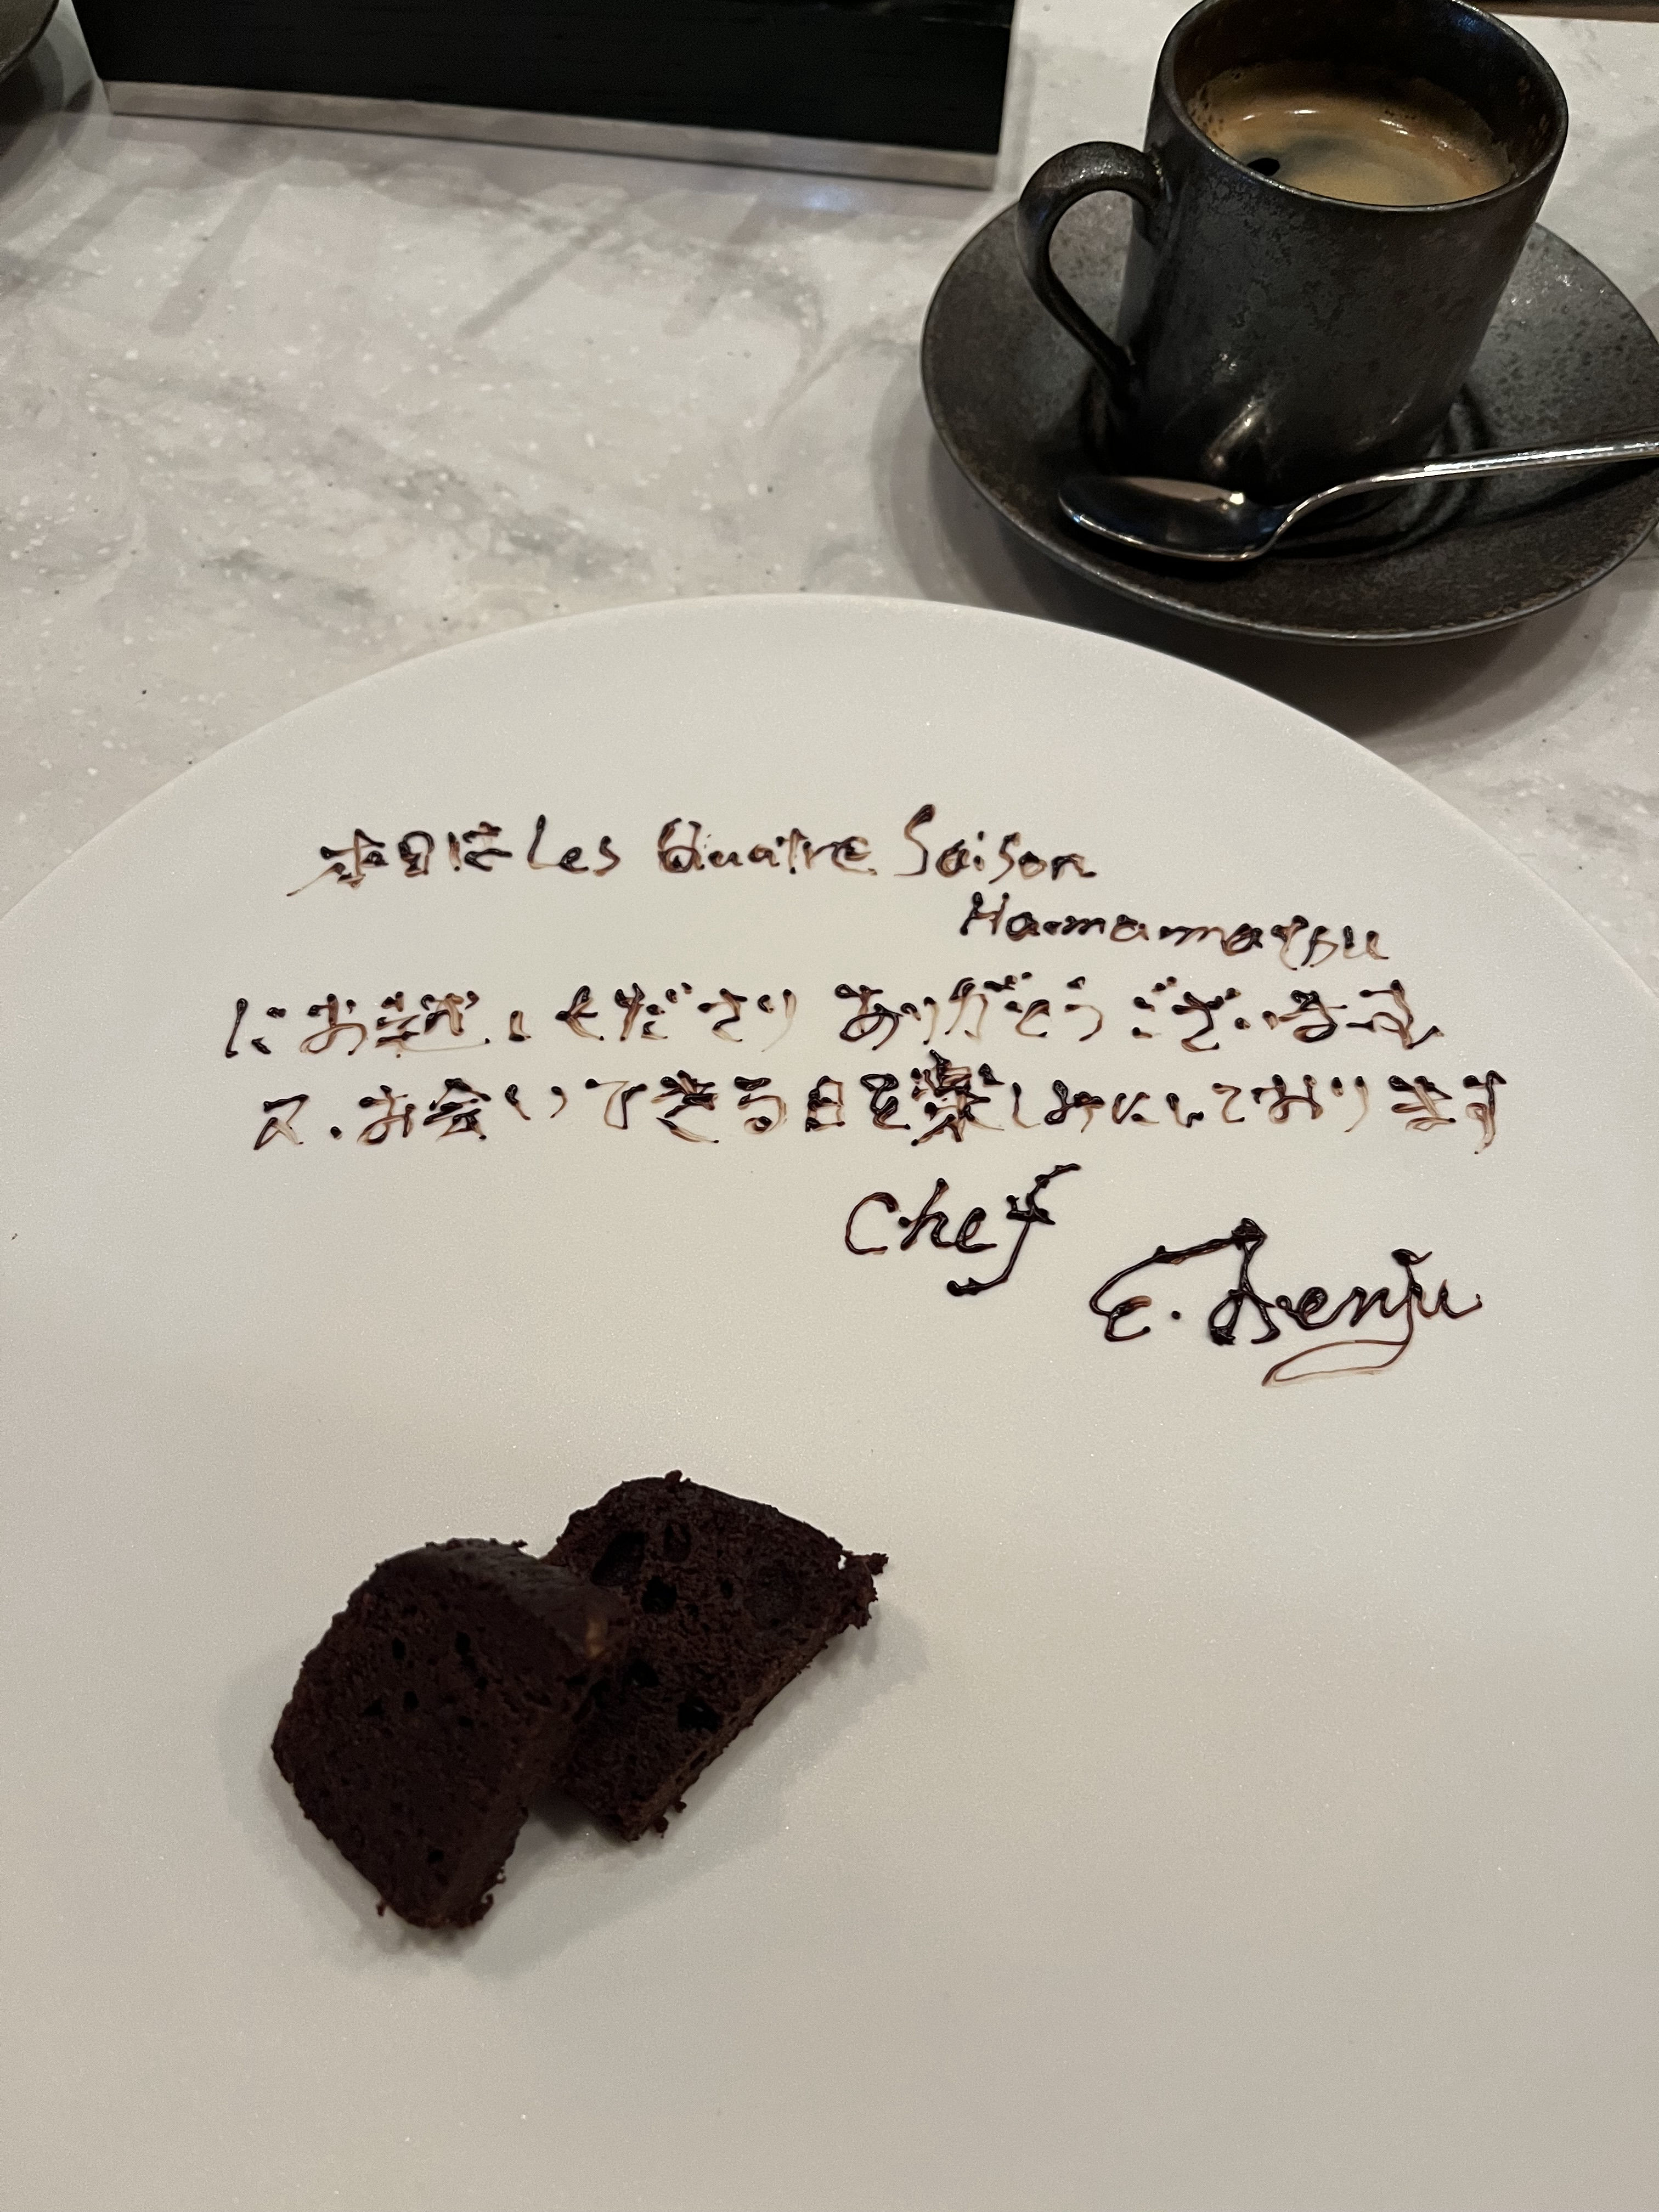 本日は Les Quatre Saison
Hamamatsu
にお越しくださり ありがとうございます
又、お会いできる日を楽しみにしております
Chef
E.